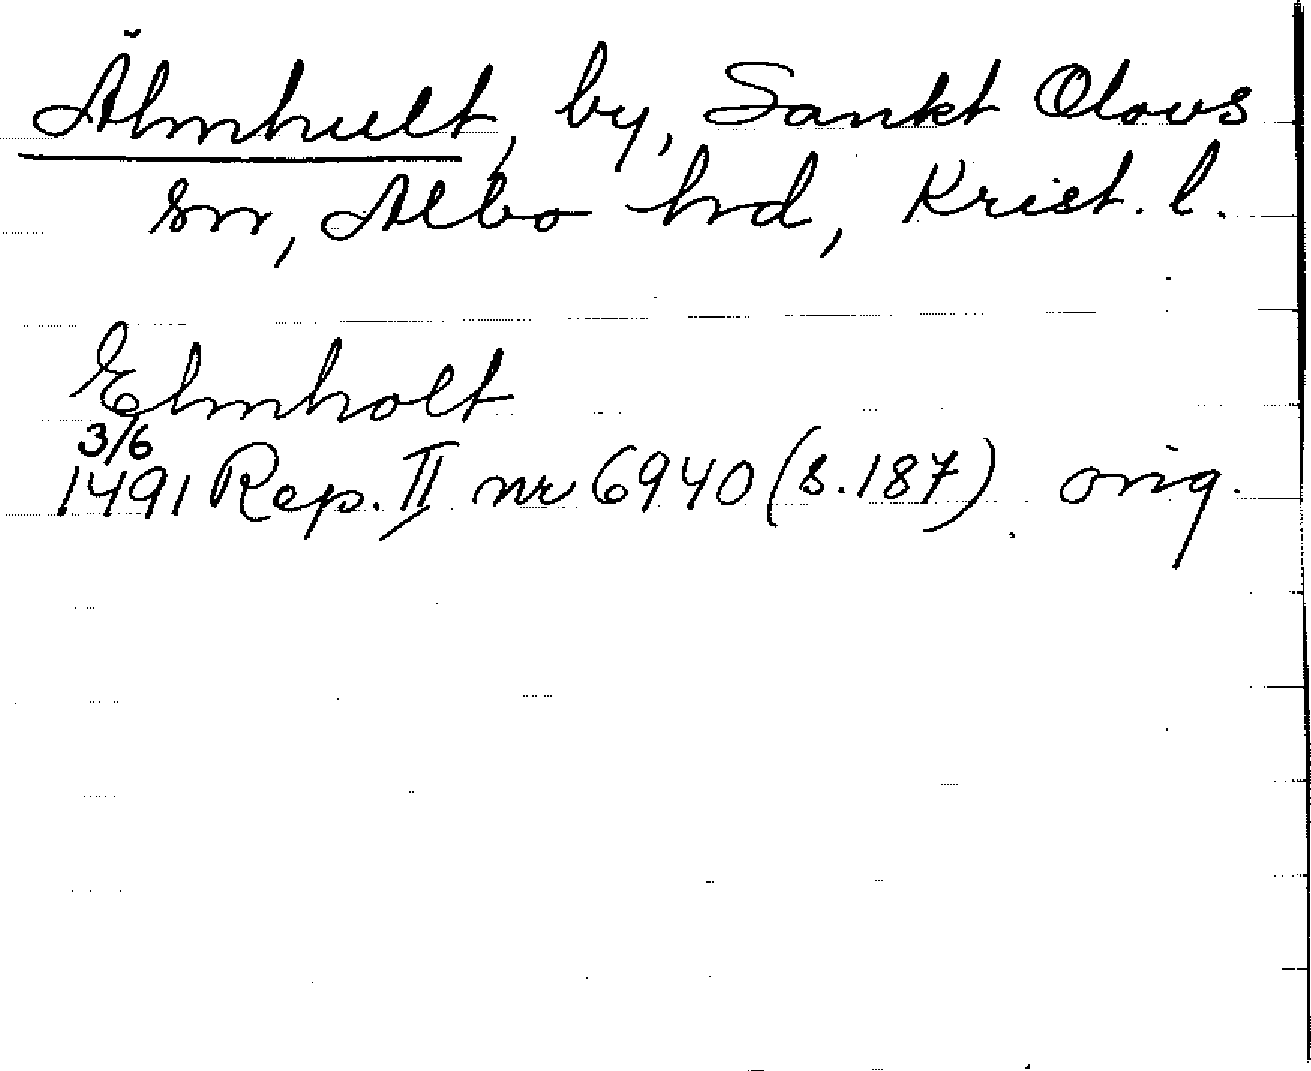 Älmhult, by, Sankt Olovs
sn, Albo hrd, Krist. l.
Elmholt
3/6
1491 Rep. II nr 6940 (s. 187) orig.